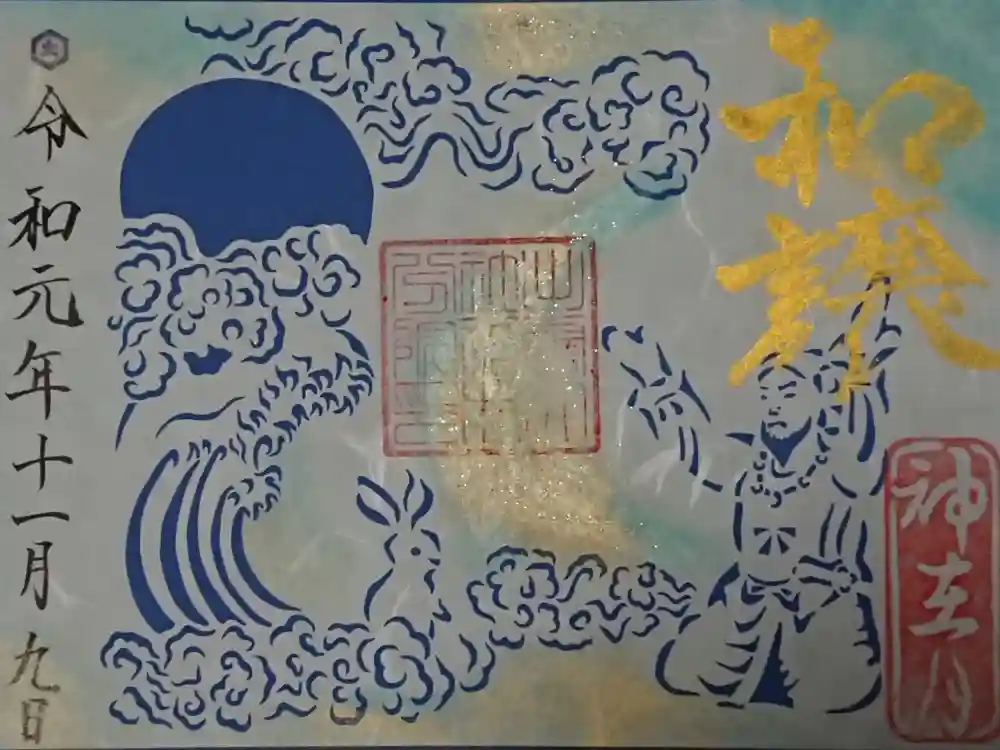 和譲
神在月
令和元年十一月九日